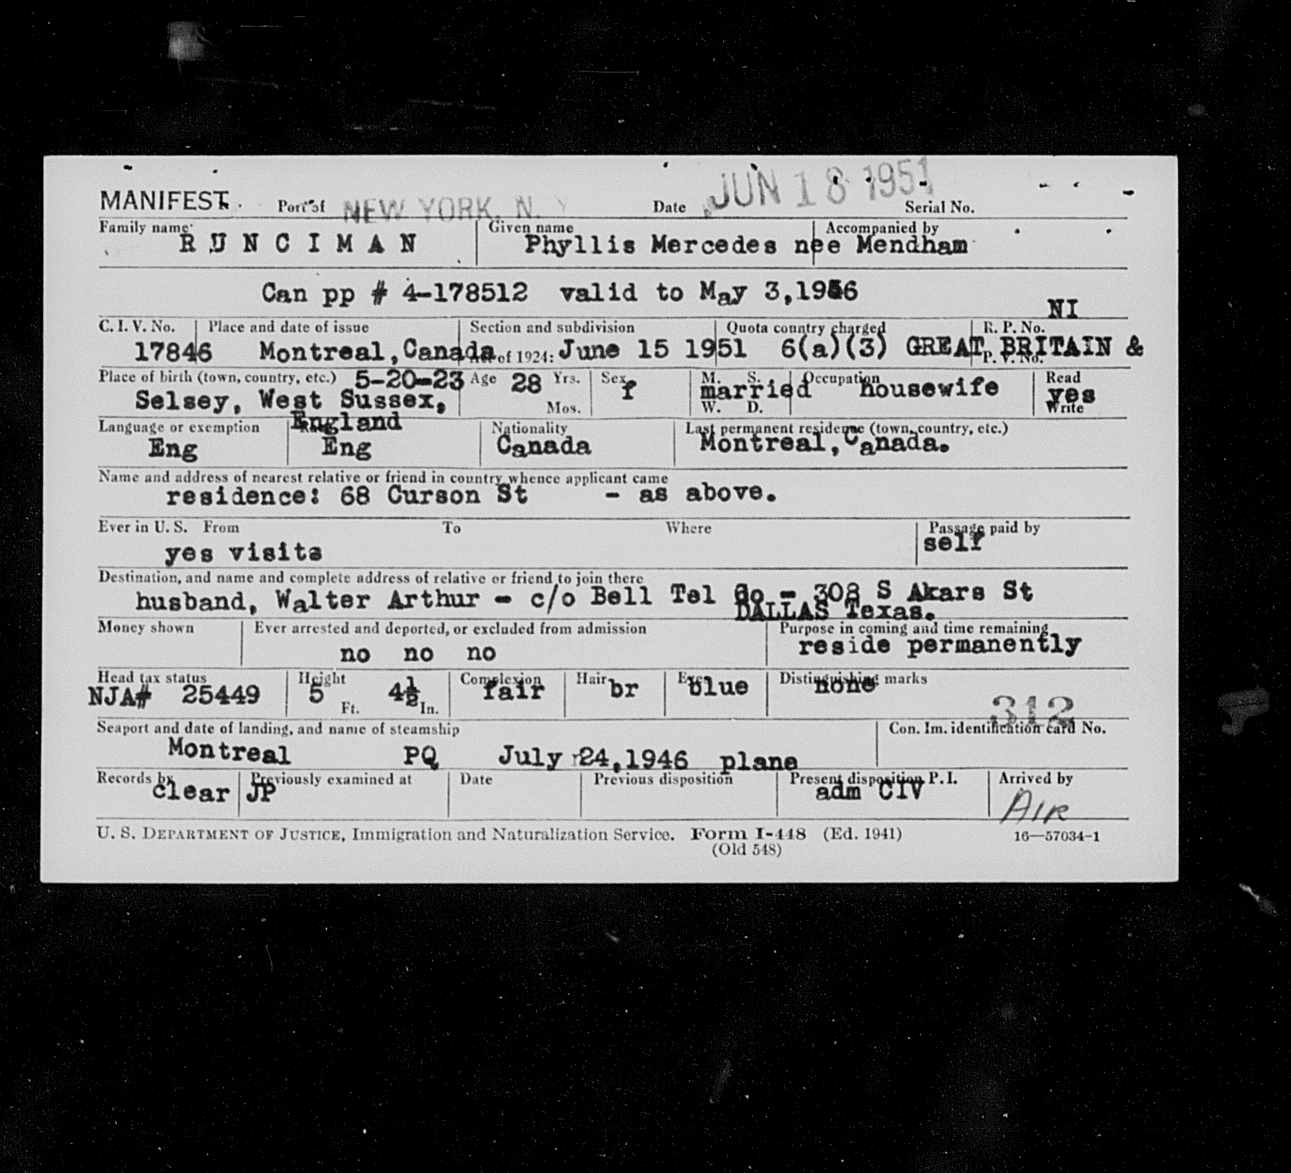 MANIFEST. Port of NEW YORK, N. Y Date JUN 18 1951 Serial No.
Family name Given name Accompanied by
RUNCIMAN Phyllis Mercedes nee Mendham
Can pp # 4-178512 valid to May 3,1956
NI
C. I. V. No. Place and date of issue Section and subdivision Quota country charged R. P. No.
17846 Montreal, Canada Act of 1924: June 15 1951 6(a)(3) GREAT BRITAIN &
P. V. No.
Place of birth (town, country, etc.) 5-20-23 Age 28 Yrs. Sex f M. S. Occupation Read
Selsey, West Sussex, Mos. married W. D. housewife yes Write
England
Language or exemption Race Nationality Last permanent residence (town, country, etc.)
Eng Eng Canada Montreal, Canada.
Name and address of nearest relative or friend in country whence applicant came
residence: 68 Curson St - as above.
Ever in U. S. From To Where Passage paid by
yes visits self
Destination, and name and complete address of relative or friend to join there
husband, Walter Arthur - c/o Bell Tel Co - 308 S Akars St
DALLAS Texas.
Money shown Ever arrested and deported, or excluded from admission Purpose in coming and time remaining
no no no reside permanently
Head tax status Height Complexion Hair Eyes Distinguishing marks
NJA# 25449 5 Ft. 4½ In. fair br blue none
312
Seaport and date of landing, and name of steamship Con. Im. identification card No.
Montreal PQ July 24,1946 plane
Records by Previously examined at Date Previous disposition Present disposition P. I. Arrived by
clear JP adm CIV AIR
U. S. DEPARTMENT OF JUSTICE, Immigration and Naturalization Service. Form I-448 (Ed. 1941) 16—57034-1
(Old 548)